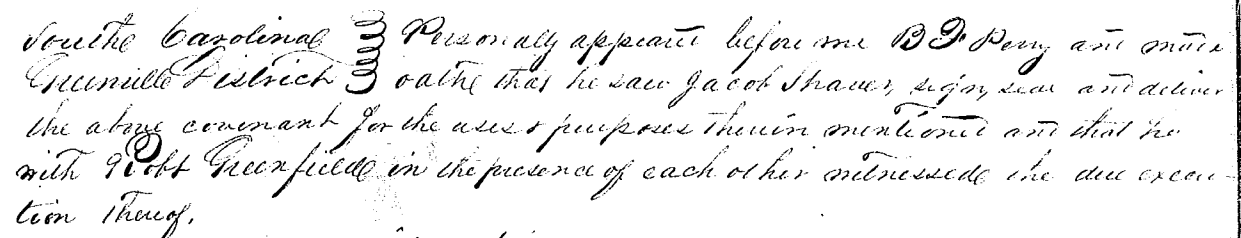 South Carolina } Personally appeared before me B F Perry and made
Greenville District } oathe that he saw Jacob Shaver, sign, seal and deliver
the above covenant for the uses & purposes therein mentioned and that he
with Robt Greenfield in the presence of each other witnessed the due execu-
tion thereof.